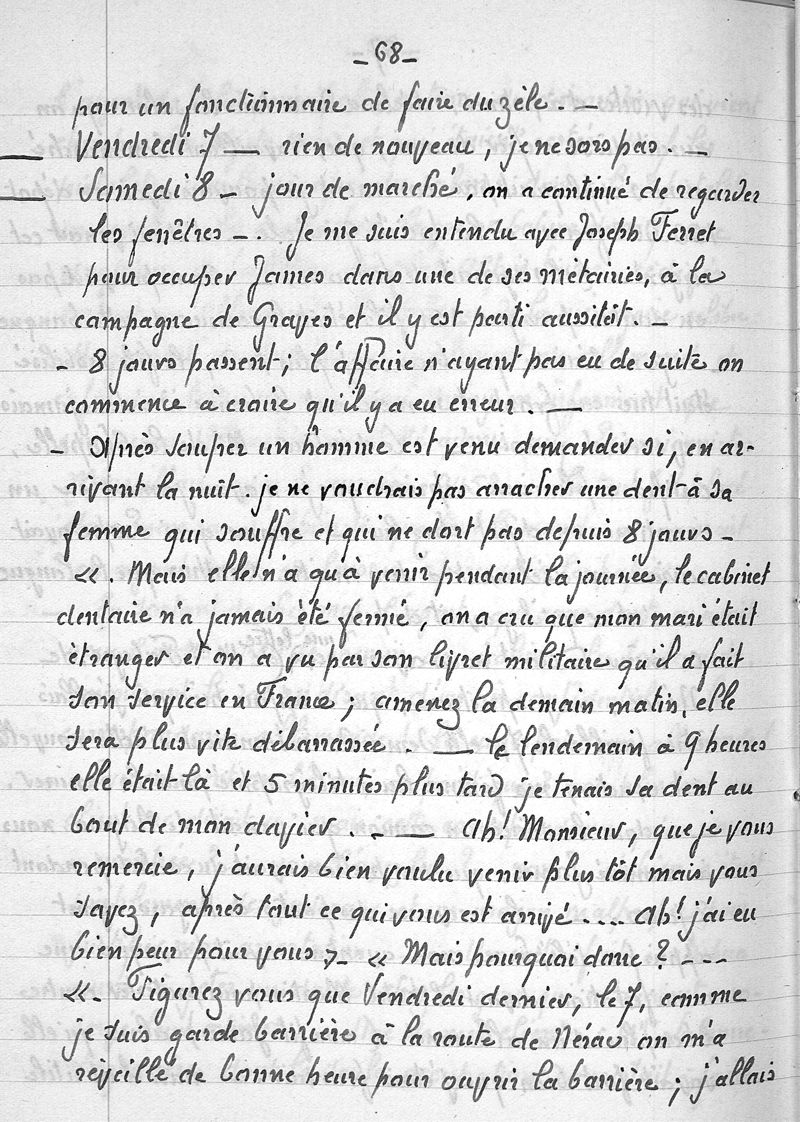 _ 68 _
pour un fonctionnaire de faire du zèle. _
Vendredi 7 — rien de nouveau, je ne sors pas. _
Samedi 8 _ jour de marché, on a continué de regarder
les fenêtres _. Je me suis entendu avec Joseph Ferret
pour occuper James dans une de ses métairies, à la
campagne de Grayes et il y est parti aussitôt. _
_ 8 jours passent; l'affaire n'ayant pas eu de suite on
commence à croire qu'il y a eu erreur. —
_ Après souper un homme est venu demander si, en ar-
rivant la nuit. je ne voudrais pas arracher une dent à sa
femme qui souffre et qui ne dort pas depuis 8 jours _
«. Mais elle n'a qu'à venir pendant la journée, le cabinet
dentaire n'a jamais été fermé, on a cru que mon mari était
étranger et on a vu par son livret militaire qu'il a fait
son service en France; amenez la demain matin, elle
sera plus vite débarrassée. — le lendemain à 9 heures
elle était là et 5 minutes plus tard je tenais sa dent au
bout de mon davier. _ — Ah! Monsieur, que je vous
remercie, j'aurais bien voulu venir plus tôt mais vous
savez, après tout ce qui vous est arrivé .... Ah! j'ai eu
bien peur pour vous »_ « Mais pourquoi donc? _ _ _
«_ Figurez vous que Vendredi dernier, le 7, comme
je suis garde barrière à la route de Nérac on m'a
réveillé de bonne heure pour ouvrir la barrière; j'allais